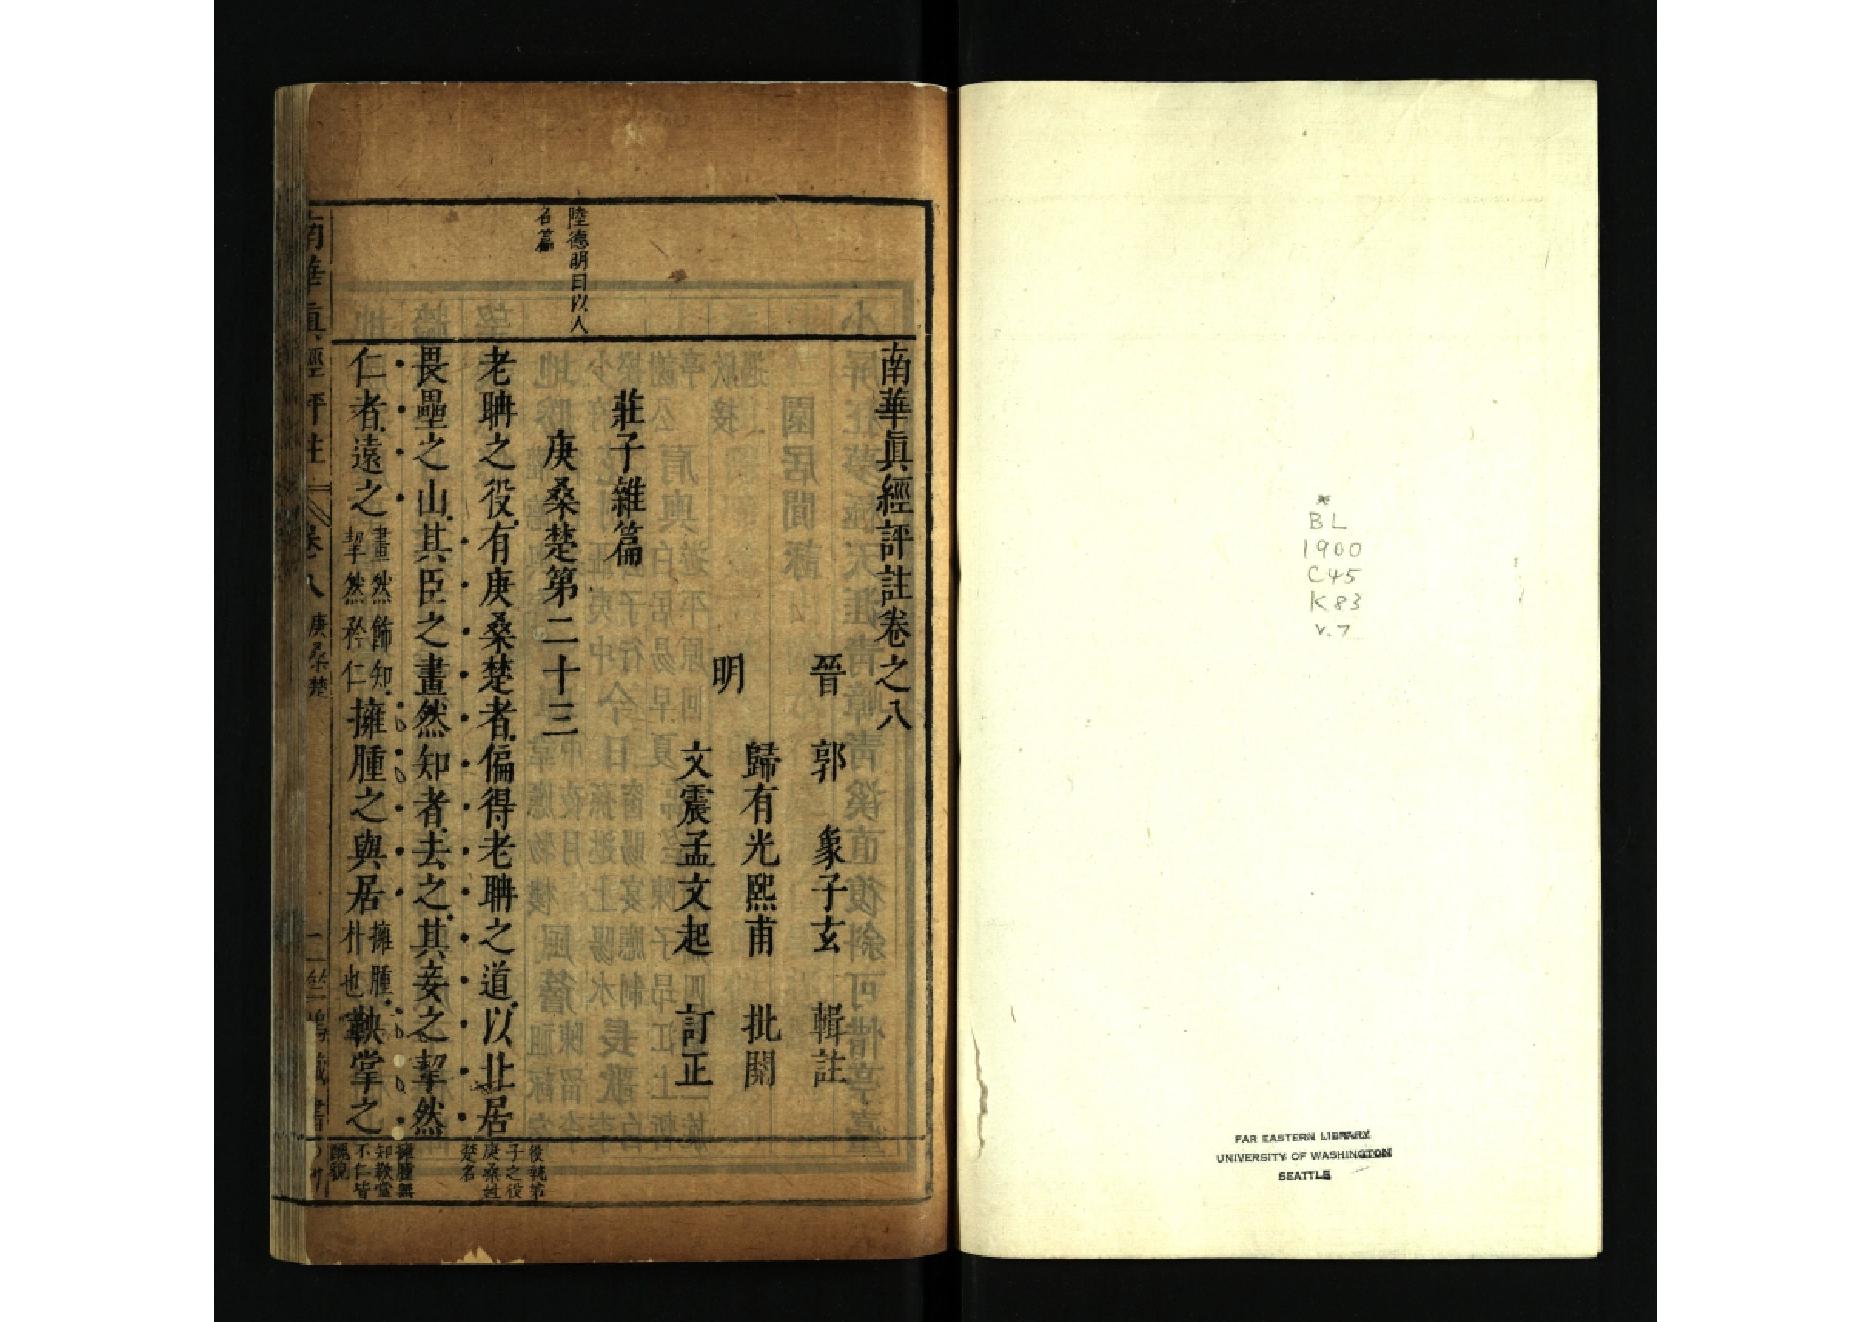 *
BL
1900
C45
K83
v.7
FAR EASTERN LIBRARY
UNIVERSITY OF WASHINGTON
SEATTLE
南華眞經評註卷之八
晉 郭 象子玄 輯註
明 歸有光熙甫 批閱
文震孟文起 訂正
莊子雜篇
庚桑楚第二十三
陸德明曰以人
名篇
老聃之役有庚桑楚者偏得老聃之道以北居
畏壘之山其臣之畫然知者去之其妾之挈然
仁者遠之畫然飾知挈然矜仁擁腫之與居擁腫朴也鞅掌之
役執弟
子之役
庚桑姓
楚名
擁腫無
知鞅掌
不仁皆
醜貌
南華眞經評註 卷八 庚桑楚